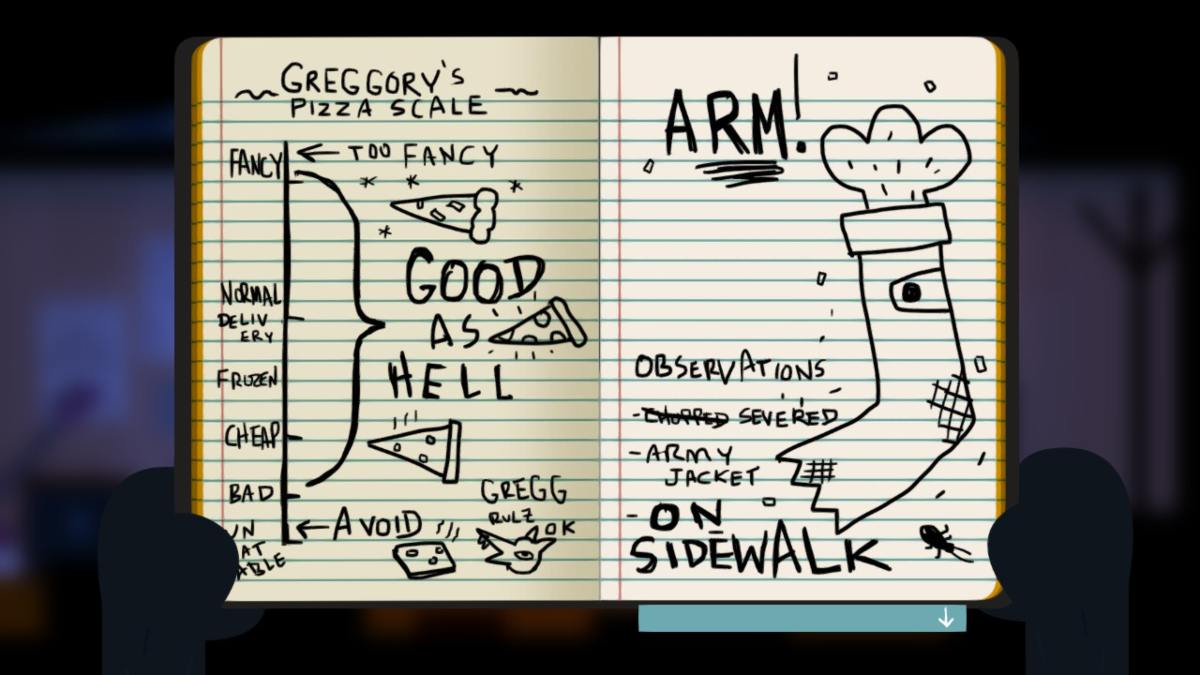 GREGGORY'S
PIZZA SCALE
FANCY
← TOO FANCY
GOOD
AS
HELL
NORMAL
DELIV
ERY
FROZEN
CHEAP
BAD
UN
EAT
ABLE
← AVOID
GREGG
RULZ
OK
ARM!
OBSERVATIONS
- CHOPPED SEVERED
- ARMY
JACKET
- ON
SIDEWALK